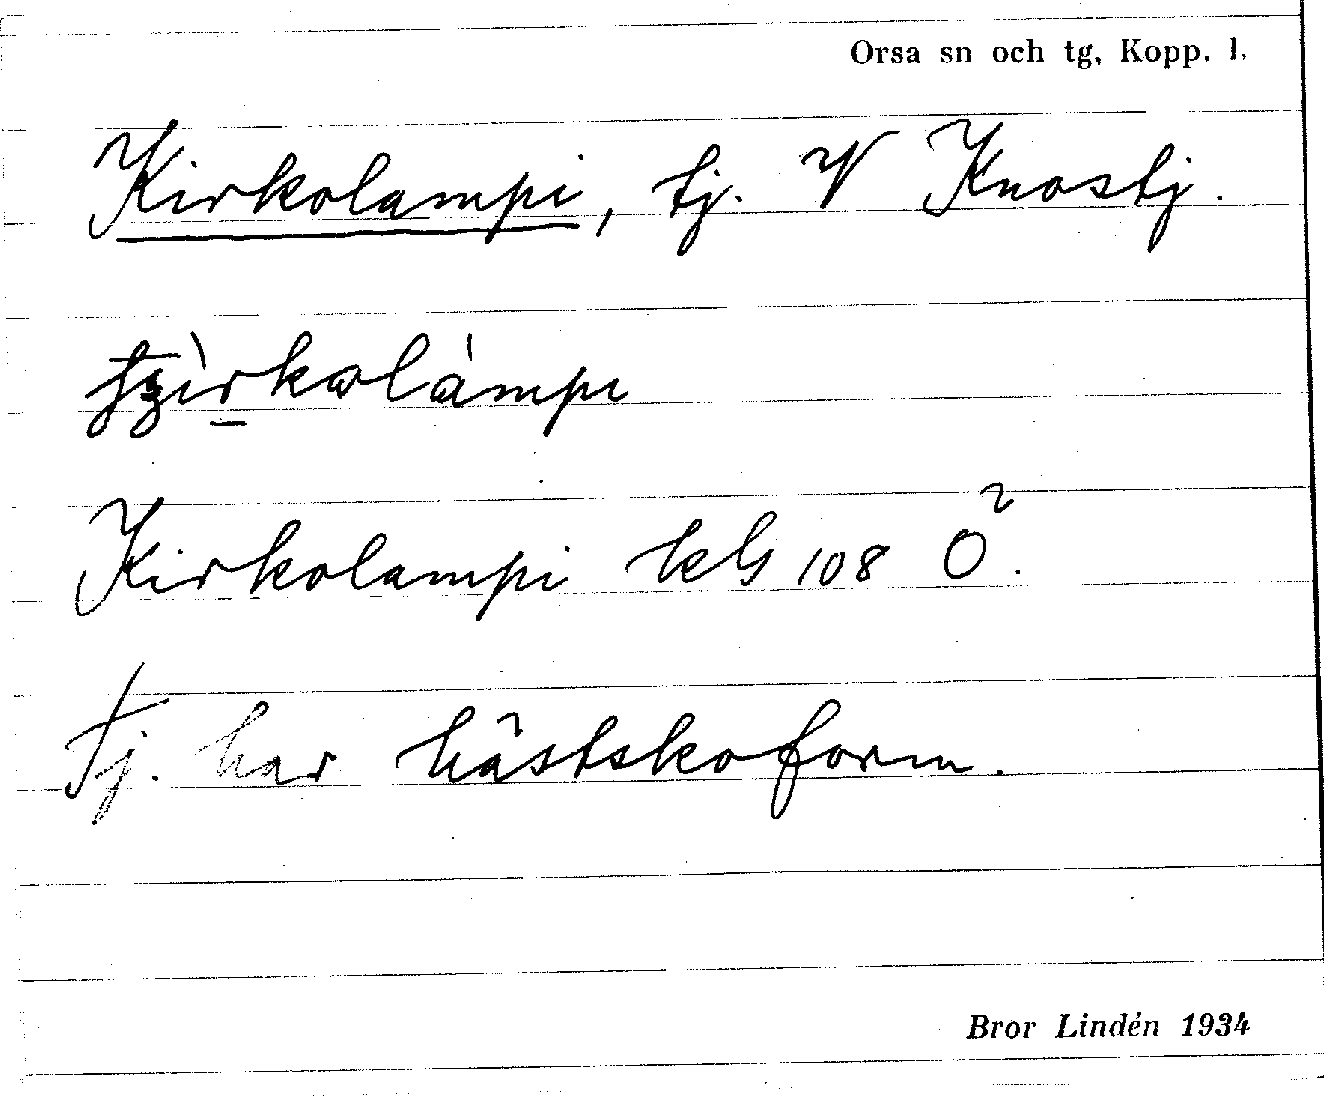 Orsa sn och tg, Kopp. l.
Kirkolampi, tj. V Knostj.
Kirkolampi kbl 108 Ö.
Tj. har hästskoform.
Bror Lindén 1934